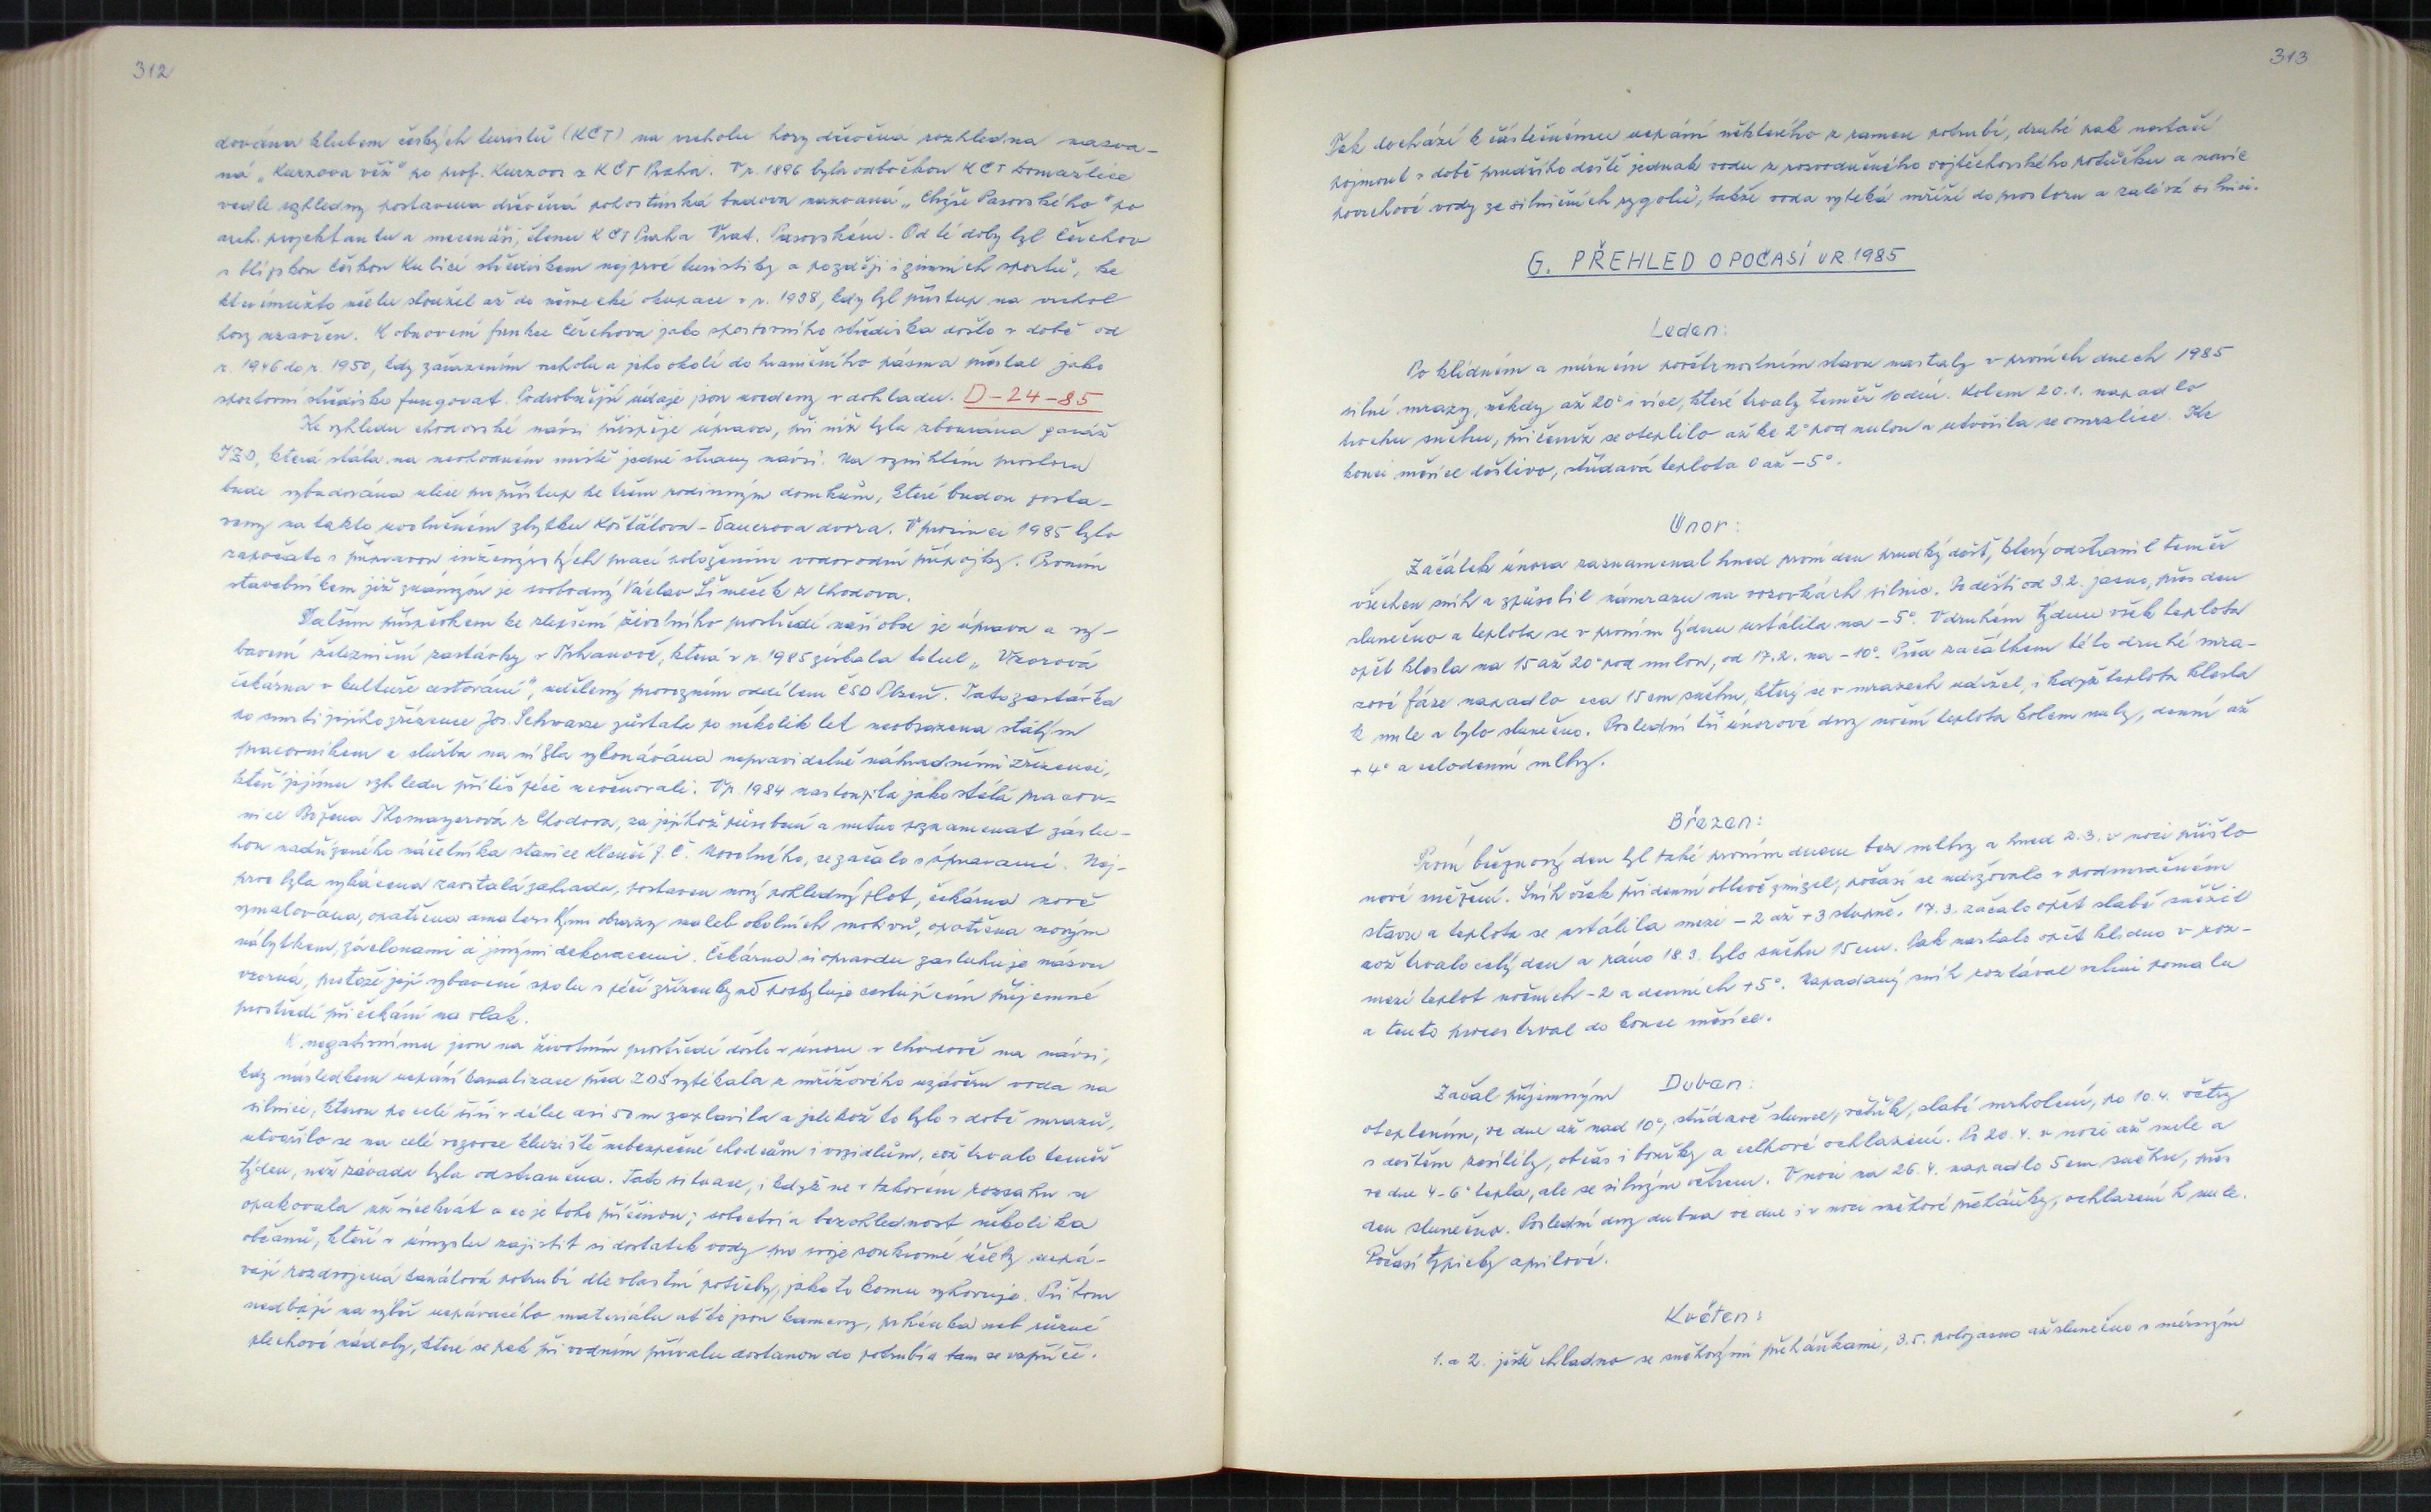 312
dována klubem českých turistů (KČT) na vrcholu hory dřevěná rozhledna nazva-
ná „Kurzova věž" po prof. Kurzovi z KČT Praha. V r. 1896 byla odbočkou KČT Domažlice
vedle rozhledny postavena dřevěná pohostinská budova nazvaná „Chýše Pasovského" po
arch. projektantu a mecenáši, členu KČT Praha Vrat. Pasovském. Od té doby byl Čerchov
s blízkou Českou Kubicí střediskem nejprve turistiky a později i zimních sportů, ke
kterémužto účelu sloužil až do německé okupace v r. 1938, kdy byl přístup na vrchol
hory uzavřen. K obnovení funkce Čerchova jako sportovního střediska došlo v době od
r. 1946 do r. 1950, kdy zařazením vrcholu a jeho okolí do hraničního pásma přestal jako
sportovní středisko fungovat. Podrobnější údaje jsou uvedeny v dokladu. D-24-85
Ke vzhledu chodovské návsi přispěje úprava, při níž byla zbourána garáž
JZD, která stála na nevhodném místě jedné strany návsi. Na vzniklém prostoru
bude vybudována ulice pro přístup ke třem rodinným domkům, které budou posta-
veny na takto uvolněném zbytku Košťálova - Sauerova dvora. V prosinci 1985 bylo
započato s přípravou inženýrských prací položením vodovodní přípojky. Prvním
stavebníkem již známým je svobodný Václav Šimeček z Chodova.
Dalším příspěvkem ke zlepšení životního prostředí naší obce je úprava a vy-
bavení železniční zastávky v Trhanově, která v r. 1985 získala titul „Vzorová
čekárna v kultuře cestování", udělený provozním oddílem ČSD Plzeň. Tato zastávka
po smrti jejího zřízence Jos. Schwarze zůstala po několik let neobsazena stálým
pracovníkem a služba na ní byla vykonávána nepravidelně náhradními zřízenci,
kteří jejímu vzhledu příliš péče nevěnovali. V r. 1984 nastoupila jako stálá pracov-
nice Božena Thomayerová z Chodova, za jejíhož působení a nutno poznamenat zásluhou
hou nadřízeného náčelníka stanice Klenčí p. Č. Novotného, se začalo s úpravami. Nej-
prve byla vykácena zarostalá zahrada, postaven nový pohledný plot, čekárna nově
vymalována, opatřena amatérskými obrazy maleb okolních motivů, opatřena novým
nábytkem, záclonami a jinými dekoracemi. Čekárna si opravdu zasluhuje název
vzorná, protože její vybavení spolu s péčí zřízenkyně poskytuje cestujícím příjemné
prostředí při čekání na vlak.
K negativnímu jevu na životním prostředí došlo v únoru v Chodově na návsi,
kdy následkem ucpání kanalizace před ZDŠ vytékala z mřížového uzávěru voda na
silnici, kterou po celé šíři v délce asi 50 m zaplavila a jelikož to bylo v době mrazů,
utvořilo se na celé vozovce kluziště nebezpečné chodcům i vozidlům, což trvalo téměř
týden, než závada byla odstraněna. Tato situace, i když ne v takovém rozsahu se
opakovala již vícekrát a co je toho příčinou; sobectví a bezohlednost několika
občanů, kteří v úmyslu zajistit si dostatek vody pro svoje soukromé účely ucpá-
vají rozdvojená kanálová potrubí dle vlastní potřeby, jak to komu vyhovuje. Při tom
nedbají na výběr ucpávacího materiálu ať to jsou kameny, prkénka neb různé
plechové nádoby, které se pak při vodním přívalu dostanou do potrubí a tam se vzpříčí.
313
Pak dochází k částečnému ucpání některého z ramen potrubí, druhé pak nestačí
pojmout v době prudšího deště jednak vodu z rozvodněného vojtěchovského potůčku a navíc
povrchové vody ze silničních rygolů, takže voda vytéká mříží do prostoru a zalévá silnici.
G. PŘEHLED O POČASÍ V R. 1985
Leden:
Po klidném a mírném povětrnostním stavu nastaly v prvních dnech 1985
silné mrazy, někdy až 20° i více, které trvaly téměř 10 dní. Kolem 20.1. napadlo
trochu sněhu, při čemž se oteplilo až ke 2° pod nulou a utvořila se omrzlice. Ke
konci měsíce deštivo, střídavá teplota 0 až -5°.
Únor:
Začátek února zaznamenal hned první den prudký déšť, který odstranil téměř
všechen sníh a způsobil námrazu na vozovkách silnic. Po dešti od 3.2. jasno, přes den
slunečno a teplota se v prvním týdnu ustálila na -5°. V druhém týdnu však teplota
opět klesla na 15 až 20° pod nulou, od 17.2. na -10°. Před začátkem této druhé mra-
zové fáze napadlo cca 15 cm sněhu, který se v mrazech udržel, i když teplota klesla
k nule a bylo slunečno. Poslední tři únorové dny noční teplota kolem nuly, denní až
+4° a celodenní mlhy.
Březen:
První březnový den byl také prvním dnem bez mlhy a hned 2.3. v noci přišlo
nové sněžení. Sníh však při denní oblevě zmizel, počasí se udržovalo v podmračeném
stavu a teplota se ustálila mezi -2 až +3 stupně. 17.3. začalo opět slabě sněžit
což trvalo celý den a ráno 18.3. bylo sněhu 15 cm. Pak nastalo opět klidno v roz-
mezí teplot nočních -2 a denních +5°. Napadaný sníh roztával velmi pomalu
a tento proces trval do konce měsíce.
Duben:
Začal příjemným
oteplením, ve dne až nad 10°, střídavě slunce, větřík, slabé mrholení, po 10.4. větry
s deštěm zesílily, občas i bouřky a celkové ochlazení. Po 20.4. v noci až nule a
ve dne 4-6° tepla, ale se silným větrem. V noci na 26.4. napadlo 5 cm sněhu, přes
den slunečno. Poslední dny dubna ve dne i v noci sněhové přeháňky, ochlazení k nule.
Počasí typicky aprílové.
Květen:
1. a 2. ještě chladno se sněhovými přeháňkami, 3.5. polojasno až slunečno s mírným